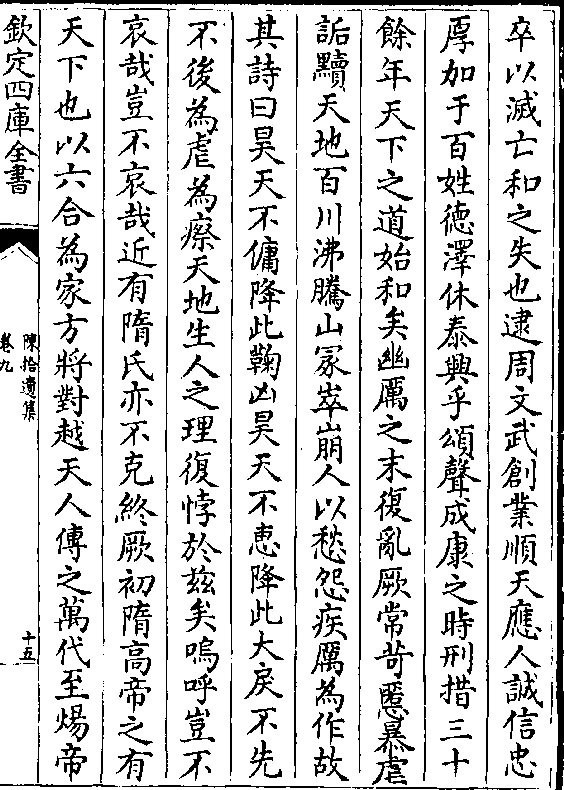 卒以滅亡和之失也逮周文武創業順天應人誠信忠
厚加于百姓德澤休泰興乎頌聲成康之時刑措三十
餘年天下之道始和矣幽厲之末復亂厥常苛慝暴虐
詬黷天地百川沸騰山冢崒崩人以愁怨疾厲為作故
其詩曰昊天不傭降此鞠凶昊天不惠降此大戾不先
不後為虐為瘵天地生人之理復悖於茲矣嗚呼豈不
哀哉豈不哀哉近有隋氏亦不克終厥初隋高帝之有
天下也以六合為家方將對越天人傳之萬代至煬帝
欽定四庫全書
陳拾遺集
卷九
十五